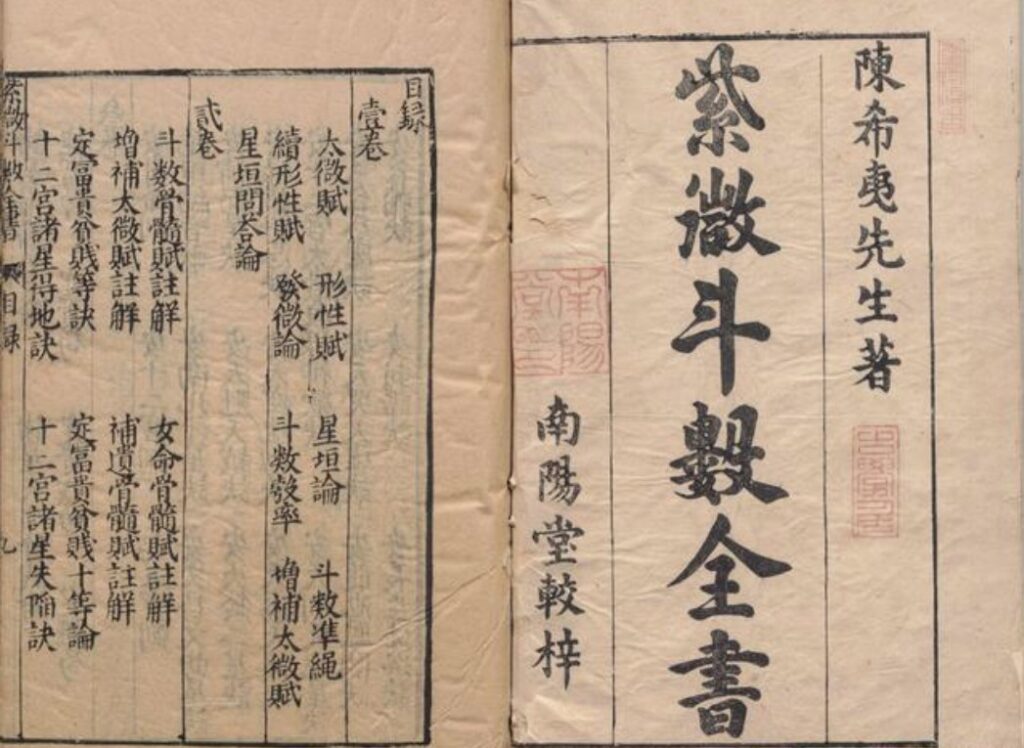 陳希夷先生著
紫微斗數全書
南陽堂較梓
目録
壹卷
太微賦 形性賦 星垣論 斗数準繩
續形性賦 發微論 斗数發率 增補太微賦
星垣問答論
貳卷
斗数骨髓賦註解 女命骨髓賦註解
增補太微賦註解 補遺骨髓賦註解
定富貴貧賎等訣 定富貴貧賎十等論
十二宫諸星得地訣 十二宫諸星失陥訣
紫微斗数全書 目録 九